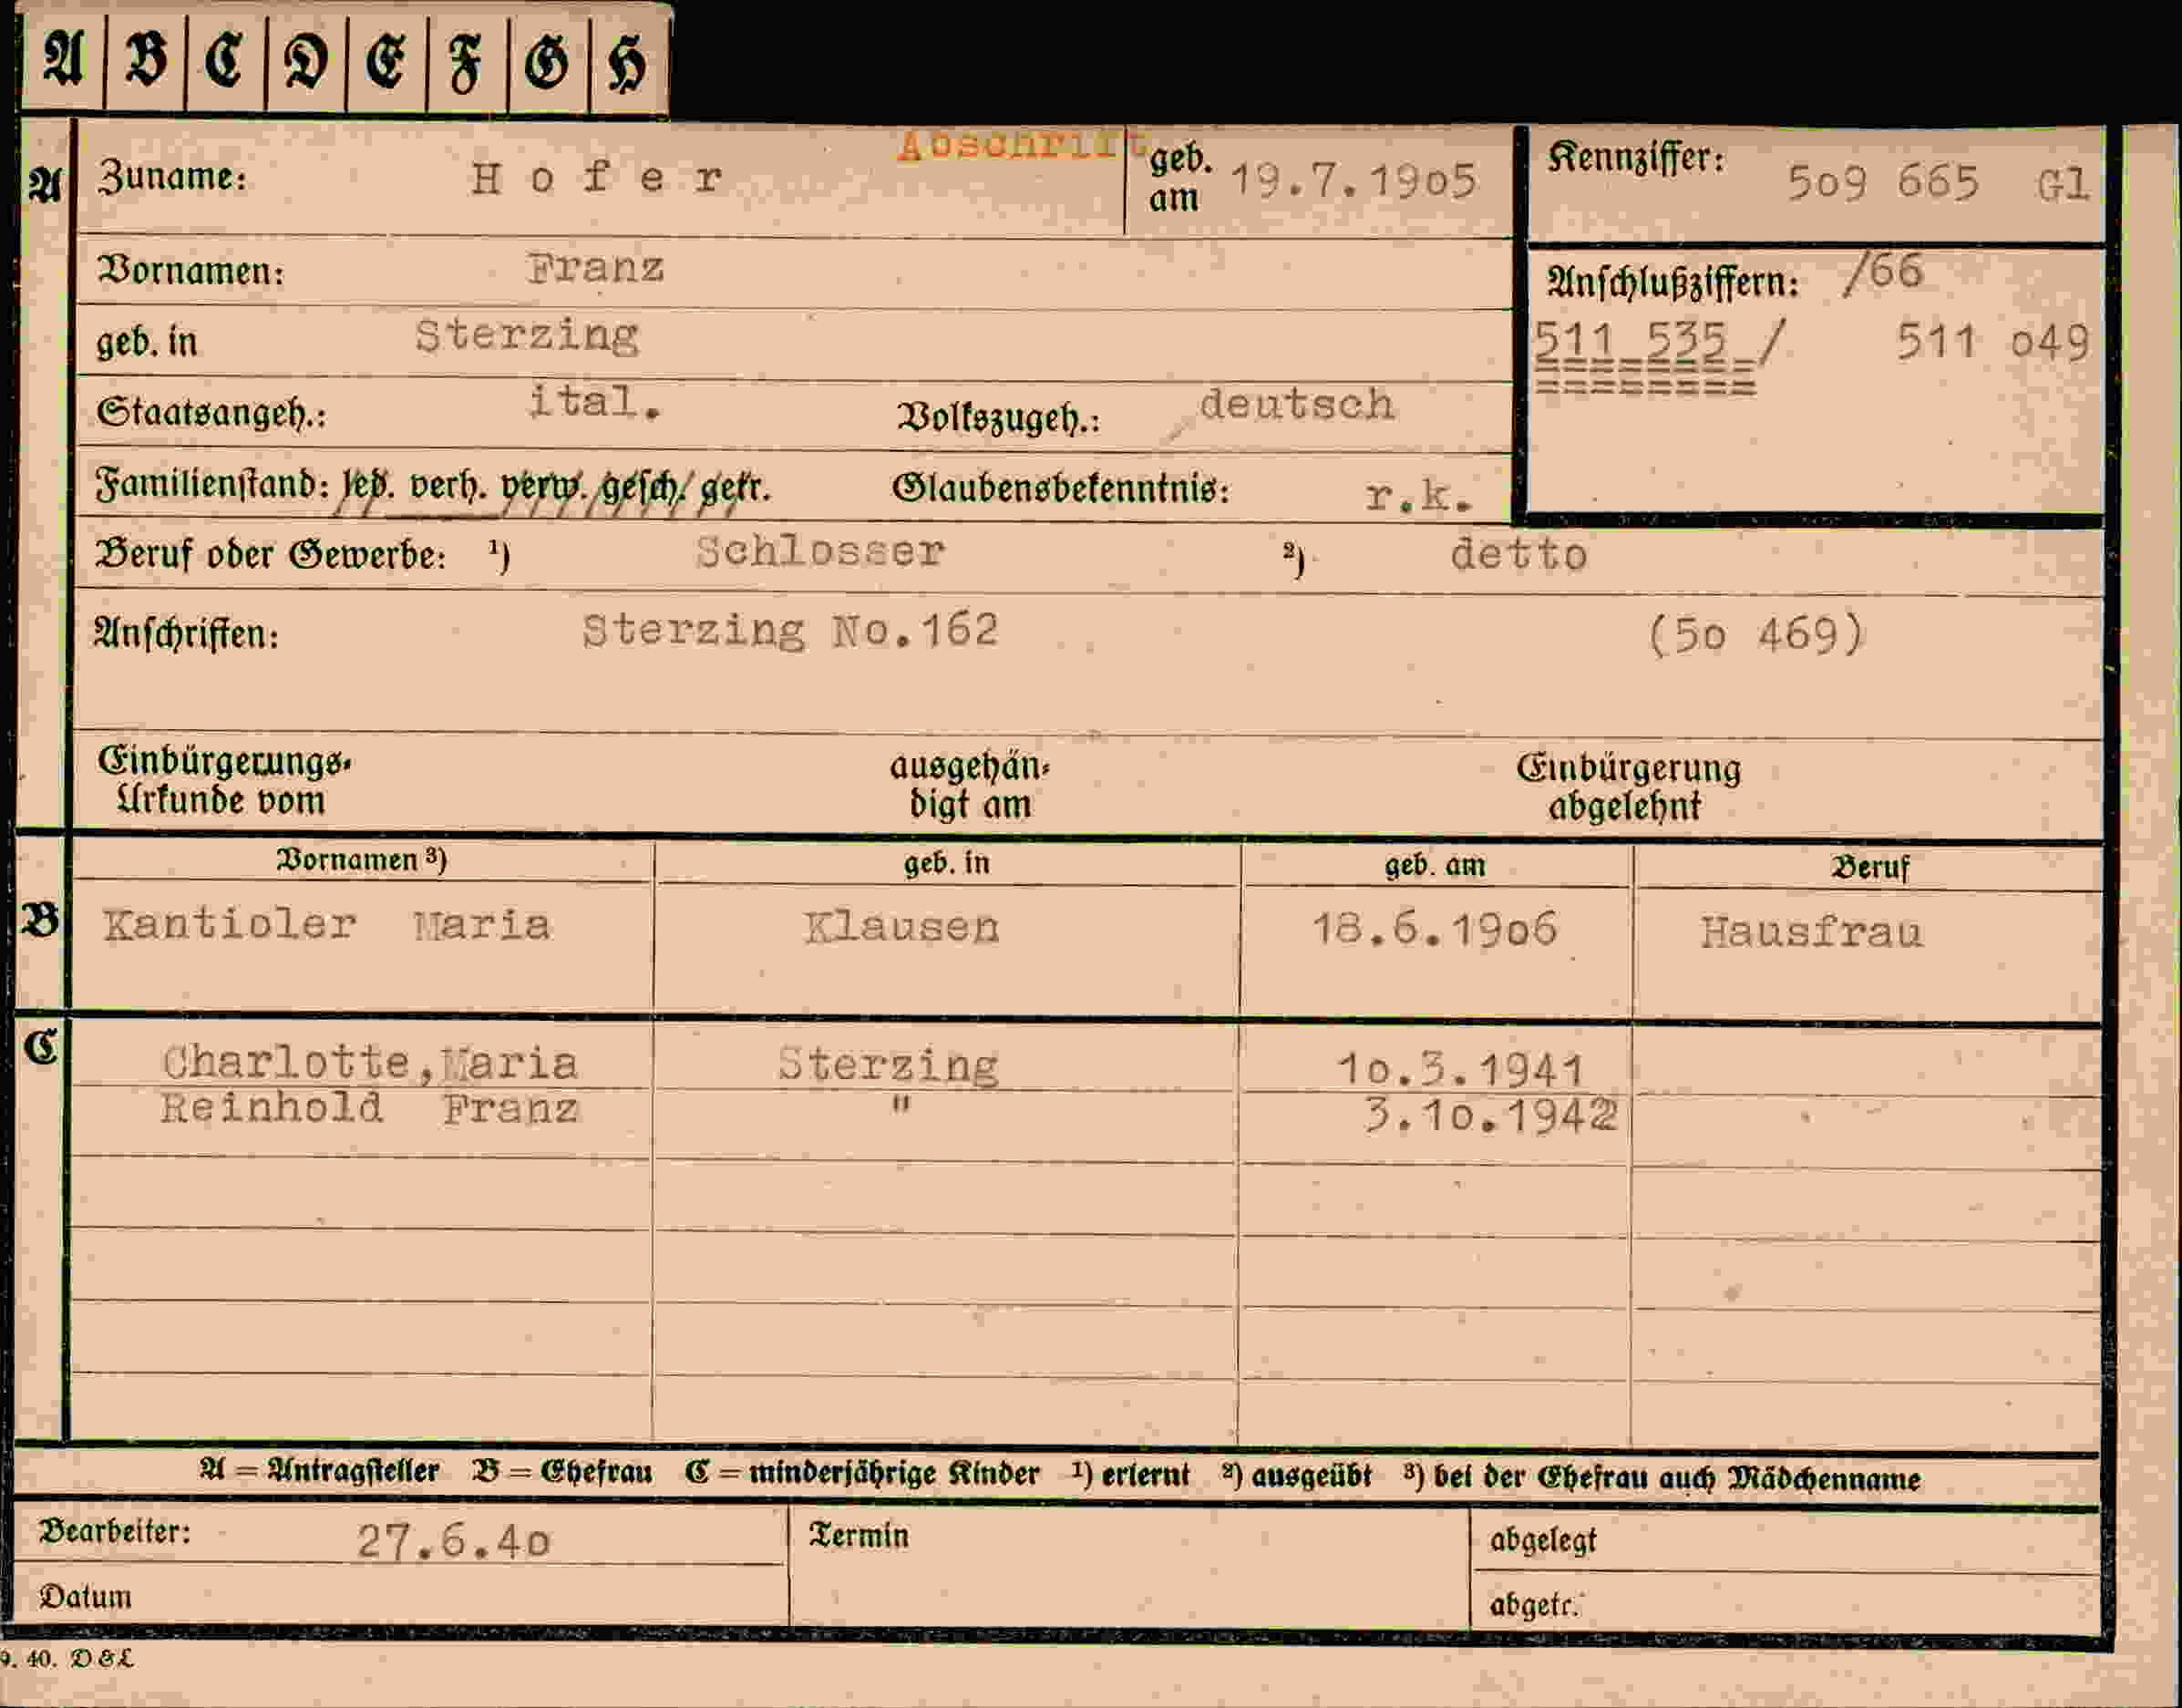 A B C D E F G H
Abschrift
A Zuname: Hofer geb. am 19.7.19o5 Kennziffer: 5o9 665 Gl
Vornamen: Franz Anschlußziffern: /66
geb. in Sterzing 511 535 / 511 o49
Staatsangeh.: ital. Volkszugeh.: deutsch
Familienstand: led. verh. verw. gesch. getr. Glaubensbekenntnis: r.k.
Beruf oder Gewerbe: ¹) Schlosser ²) detto
Anschriften: Sterzing No.162 (5o 469)
Einbürgerungs- ausgehän- Einbürgerung
Urkunde vom digt am abgelehnt
Vornamen ³) geb. in geb. am Beruf
B Kantioler Maria Klausen 18.6.19o6 Hausfrau
C Charlotte,Maria Sterzing 1o.3.1941
Reinhold Franz " 3.1o.1942
A = Antragsteller B = Ehefrau C = minderjährige Kinder ¹) erlernt ²) ausgeübt ³) bei der Ehefrau auch Mädchenname
Bearbeiter: 27.6.4o Termin abgelegt
Datum abgetr.
9. 40. D & L